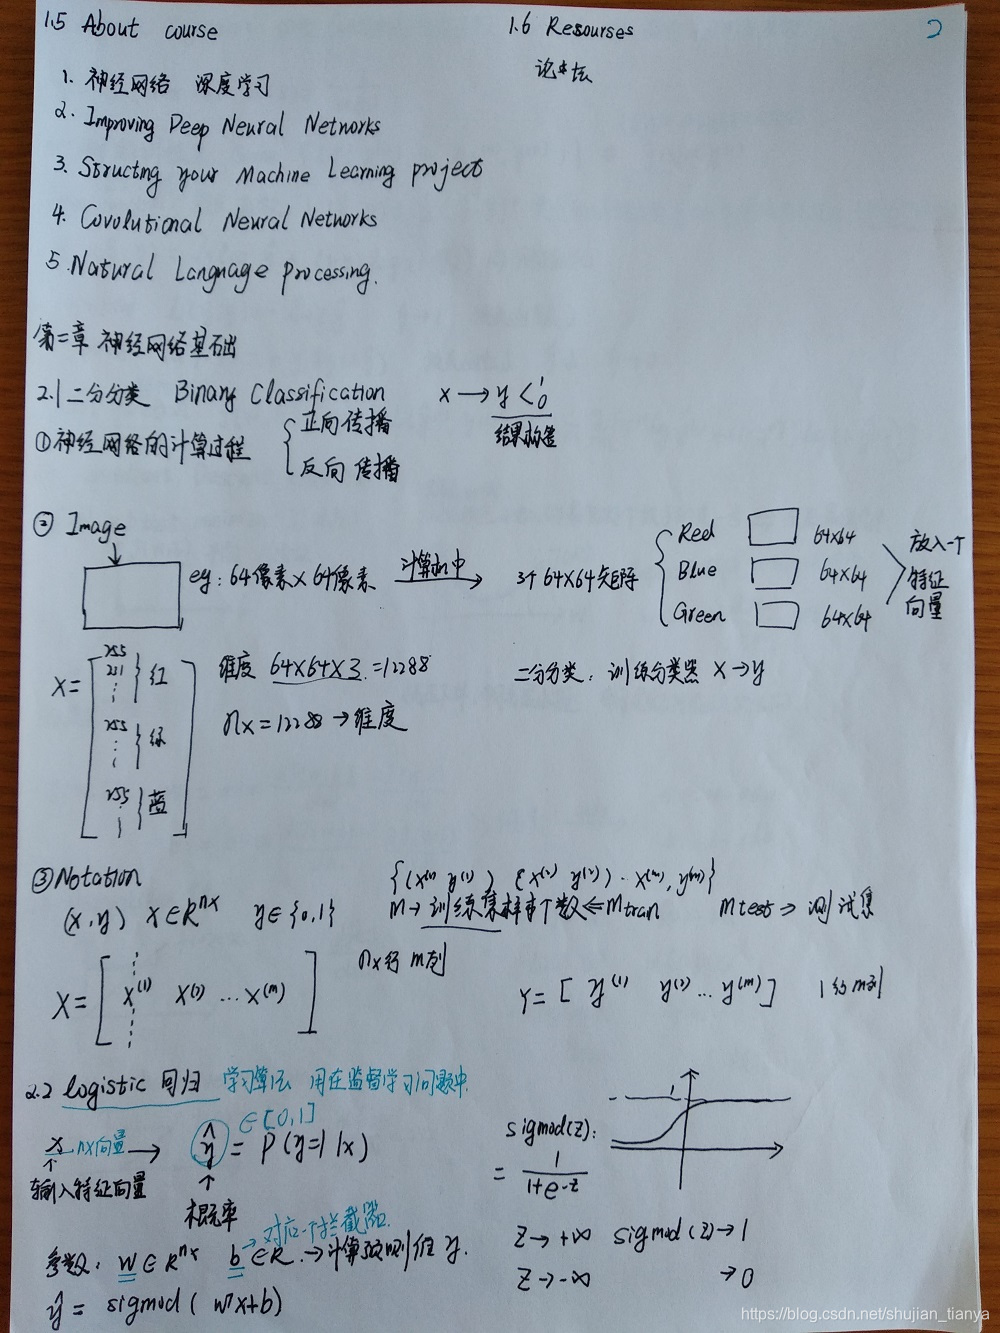 1.5 About course
1.6 Resourses
2
论坛
1. 神经网络 深度学习
2. Improving Deep Neural Networks
3. Structing your Machine Learning project
4. Covolutional Neural Networks
5. Natural Language processing.
第二章 神经网络基础
2.1 二分分类 Binary Classification
x → y < 1 0
结果标签
①神经网络的计算过程
正向传播
反向传播
② Image
eg: 64像素×64像素
计算机中
3个 64×64矩阵
Red 64×64
Blue 64×64
Green 64×64
放入一个
特征
向量
X = [ 255 231 ⋮ } 红
255 ⋮ } 绿
255 ⋮ } 蓝 ]
维度 64×64×3 = 12288
nx = 12288 → 维度
二分分类: 训练分类器 X → y
③ Notation
{(x(1) y(1)) (x(2) y(2)) · x(m), y(m)}
(x, y) x∈R^nx y∈{0,1}
m → 训练集样本个数 ⇐ mtran
mtest ⇒ 测试集
X = [ x(1) x(2) ... x(m) ]
nx行 m列
Y = [ y(1) y(2) ... y(m) ] 1行 m列
2.2 logistic 回归 学习算法 用在监督学习问题中.
x nx向量 → ŷ = P(y=1|x)
∈[0,1]
输入特征向量
概率
sigmod(z):
= 1/(1+e-z)
1
参数: w∈R^nx b∈R. → 计算预测值 ŷ.
→ 对应一个拦截器.
ŷ = sigmod( wTx+b)
z → +∞ sigmod(z) → 1
z → -∞ → 0
https://blog.csdn.net/shujian_tianya